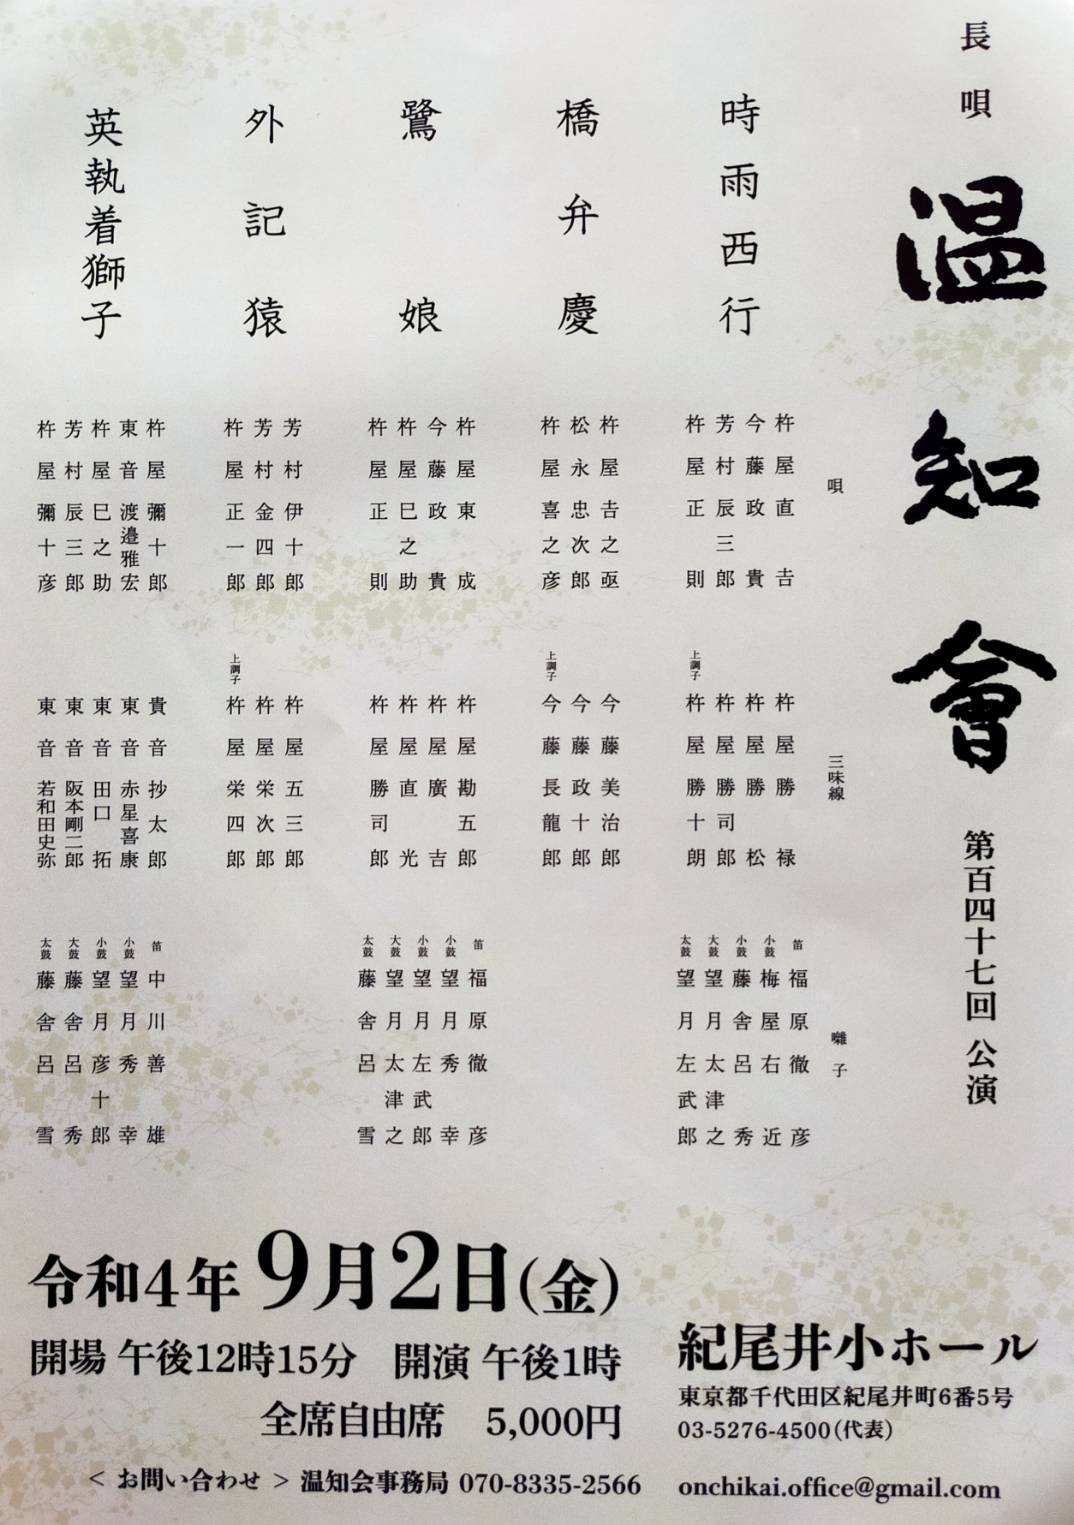 長唄
温知會
第百四十七回 公演
唄
三味線
囃子
時雨西行
杵屋直吉
今藤政貴
芳村辰三郎
杵屋正則
杵屋勝禄
杵屋勝松
杵屋勝司郎
上調子 杵屋勝十朗
笛 福原徹彦
小鼓 梅屋右近
小鼓 藤舎呂秀
大鼓 望月太津之
太鼓 望月左武郎
橋弁慶
杵屋吉之亟
松永忠次郎
杵屋喜之彦
今藤美治郎
今藤政十郎
上調子 今藤長龍郎
鷺娘
杵屋東成
今藤政貴
杵屋巳之助
杵屋正則
杵屋勘五郎
杵屋廣吉
杵屋直光
杵屋勝司郎
笛 福原徹彦
小鼓 望月秀幸
小鼓 望月左武郎
大鼓 望月太津之
太鼓 藤舎呂雪
外記猿
芳村伊十郎
芳村金四郎
杵屋正一郎
杵屋五三郎
杵屋栄次郎
上調子 杵屋栄四郎
英執着獅子
杵屋彌十郎
東音渡邉雅宏
杵屋巳之助
芳村辰三郎
杵屋彌十彦
貴音抄太郎
東音赤星喜康
東音田口拓
東音阪本剛二郎
東音若和田史弥
笛 中川善雄
小鼓 望月秀幸
小鼓 望月彦十郎
大鼓 藤舎呂秀
太鼓 藤舎呂雪
令和4年9月2日(金)
開場 午後12時15分 開演 午後1時
全席自由席 5,000円
紀尾井小ホール
東京都千代田区紀尾井町6番5号
03-5276-4500(代表)
< お問い合わせ > 温知会事務局 070-8335-2566 onchikai.office@gmail.com